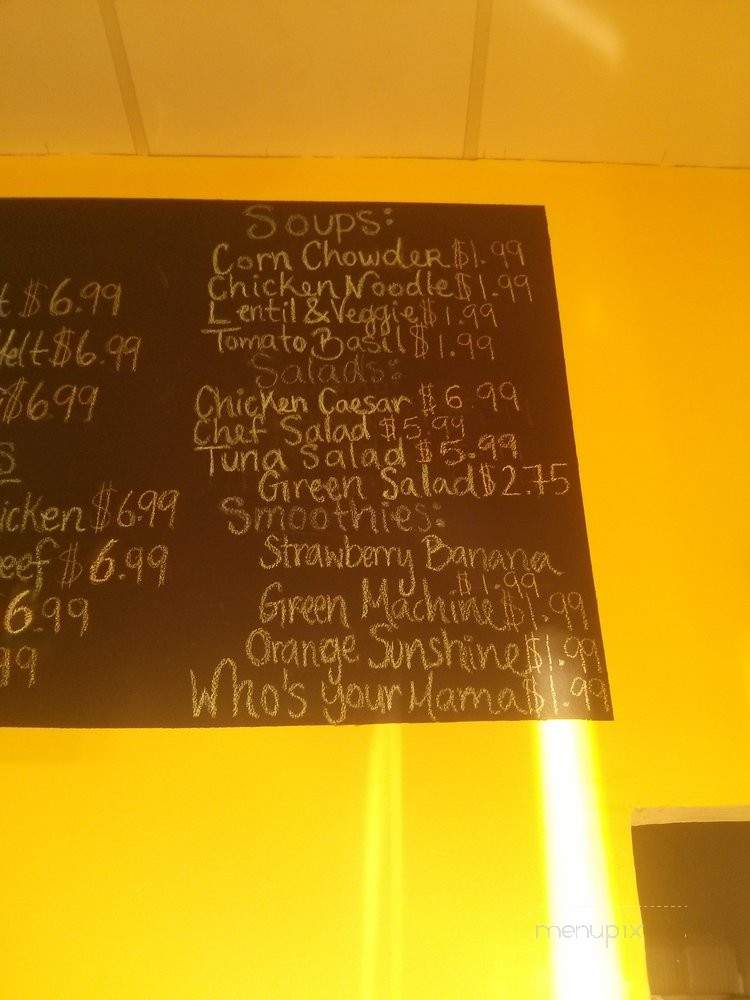 Soups:
Corn Chowder $1.99
Chicken Noodle $1.99
Lentil & Veggie $1.99
Tomato Basil $1.99
Salads:
Chicken Caesar $6.99
Chef Salad $5.99
Tuna Salad $5.99
Green Salad $2.75
Smoothies:
Strawberry Banana
$1.99
Green Machine $1.99
Orange Sunshine $1.99
Who's your Mama $1.99
t $6.99
elt $6.99
$6.99
s
icken $6.99
eef $6.99
6.99
99
menupix